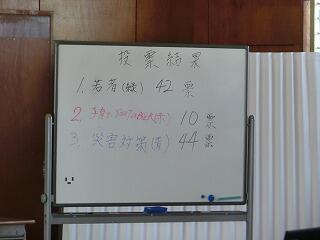 投票結果
1. 若者(緑) 42 票
2. 10 票
3. 災害対策(青) 44 票